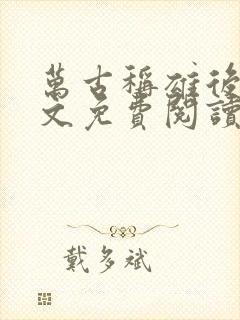 萬古稱雄後
文免費閱讀
戴多斌